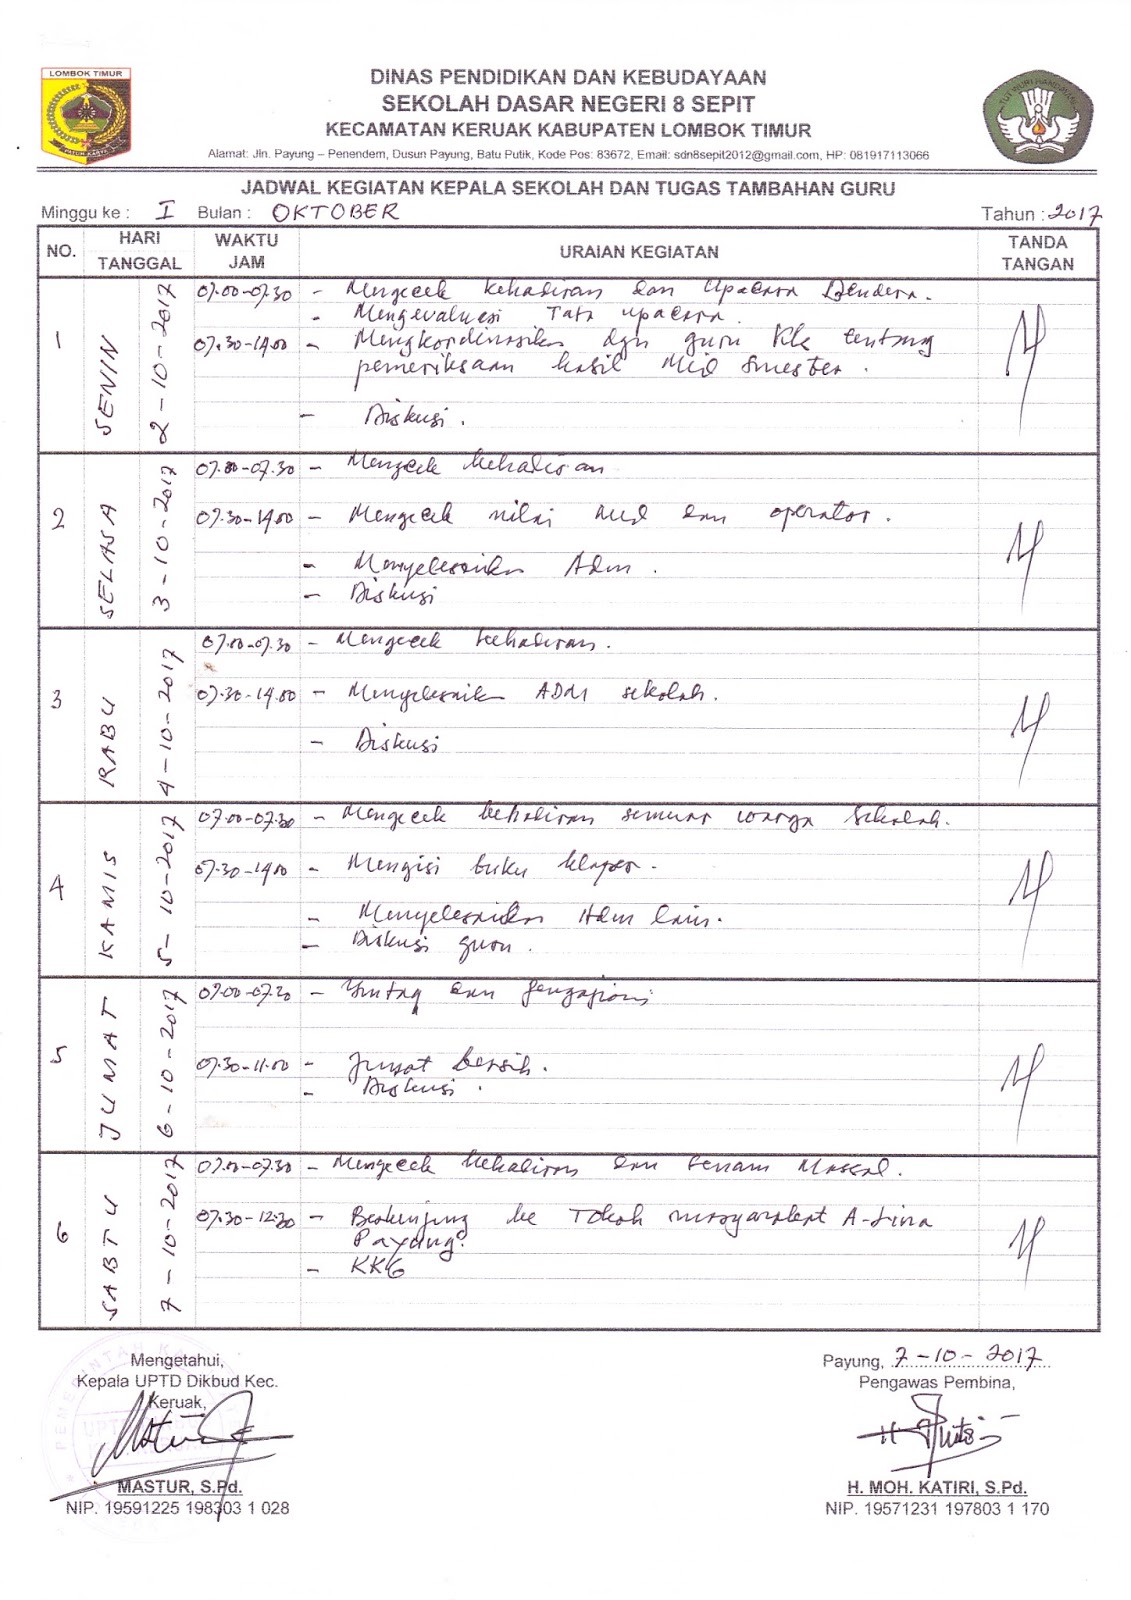 LOMBOK TIMUR
DINAS PENDIDIKAN DAN KEBUDAYAAN
SEKOLAH DASAR NEGERI 8 SEPIT
KECAMATAN KERUAK KABUPATEN LOMBOK TIMUR
Alamat: Jln. Payung – Penendem, Dusun Payung, Batu Putik, Kode Pos: 83672, Email: sdn8sepit2012@gmail.com, HP: 081917113066
TUT WURI HANDAYANI
JADWAL KEGIATAN KEPALA SEKOLAH DAN TUGAS TAMBAHAN GURU
Minggu ke : I Bulan : OKTOBER Tahun : 2017
NO. HARI TANGGAL WAKTU JAM URAIAN KEGIATAN TANDA TANGAN
1 SENIN 2-10-2017
07.00-07.30 - Mengecek kehadiran dan Upacara Bendera.
- Mengevaluasi Tata upacara.
07.30-14.00 - Mengkordinasikan dgn guru Kls tentang
pemeriksaan hasil Mid Smester.
- Diskusi.
2 SELASA 3-10-2017
07.00-07.30 - Mengecek kehadiran
07.30-14.00 - Mengecek nilai Mid dan operator.
- Menyelesaikan Adm.
- Diskusi
3 RABU 4-10-2017
07.00-07.30 - Mengecek kehadiran.
07.30-14.00 - Menyelesaikan ADM sekolah.
- Diskusi
4 KAMIS 5-10-2017
07.00-07.30 - Mengecek kehadiran semua warga Sekolah.
07.30-14.00 - Mengisi buku klaper.
- Menyelesaikan Adm lain.
- Diskusi guru.
5 JUMAT 6-10-2017
07.00-07.30 - Imtaq dan
07.30-11.00 - Jumat bersih.
- Diskusi.
6 SABTU 7-10-2017
07.00-07.30 - Mengecek kehadiran dan Senam Massal.
07.30-12.30 - Berkunjung ke Tokoh masyarakat
Payung.
- KKG
Mengetahui,
Kepala UPTD Dikbud Kec.
Keruak,
MASTUR, S.Pd.
NIP. 19591225 198303 1 028
Payung, 7-10-2017
Pengawas Pembina,
H. MOH. KATIRI, S.Pd.
NIP. 19571231 197803 1 170